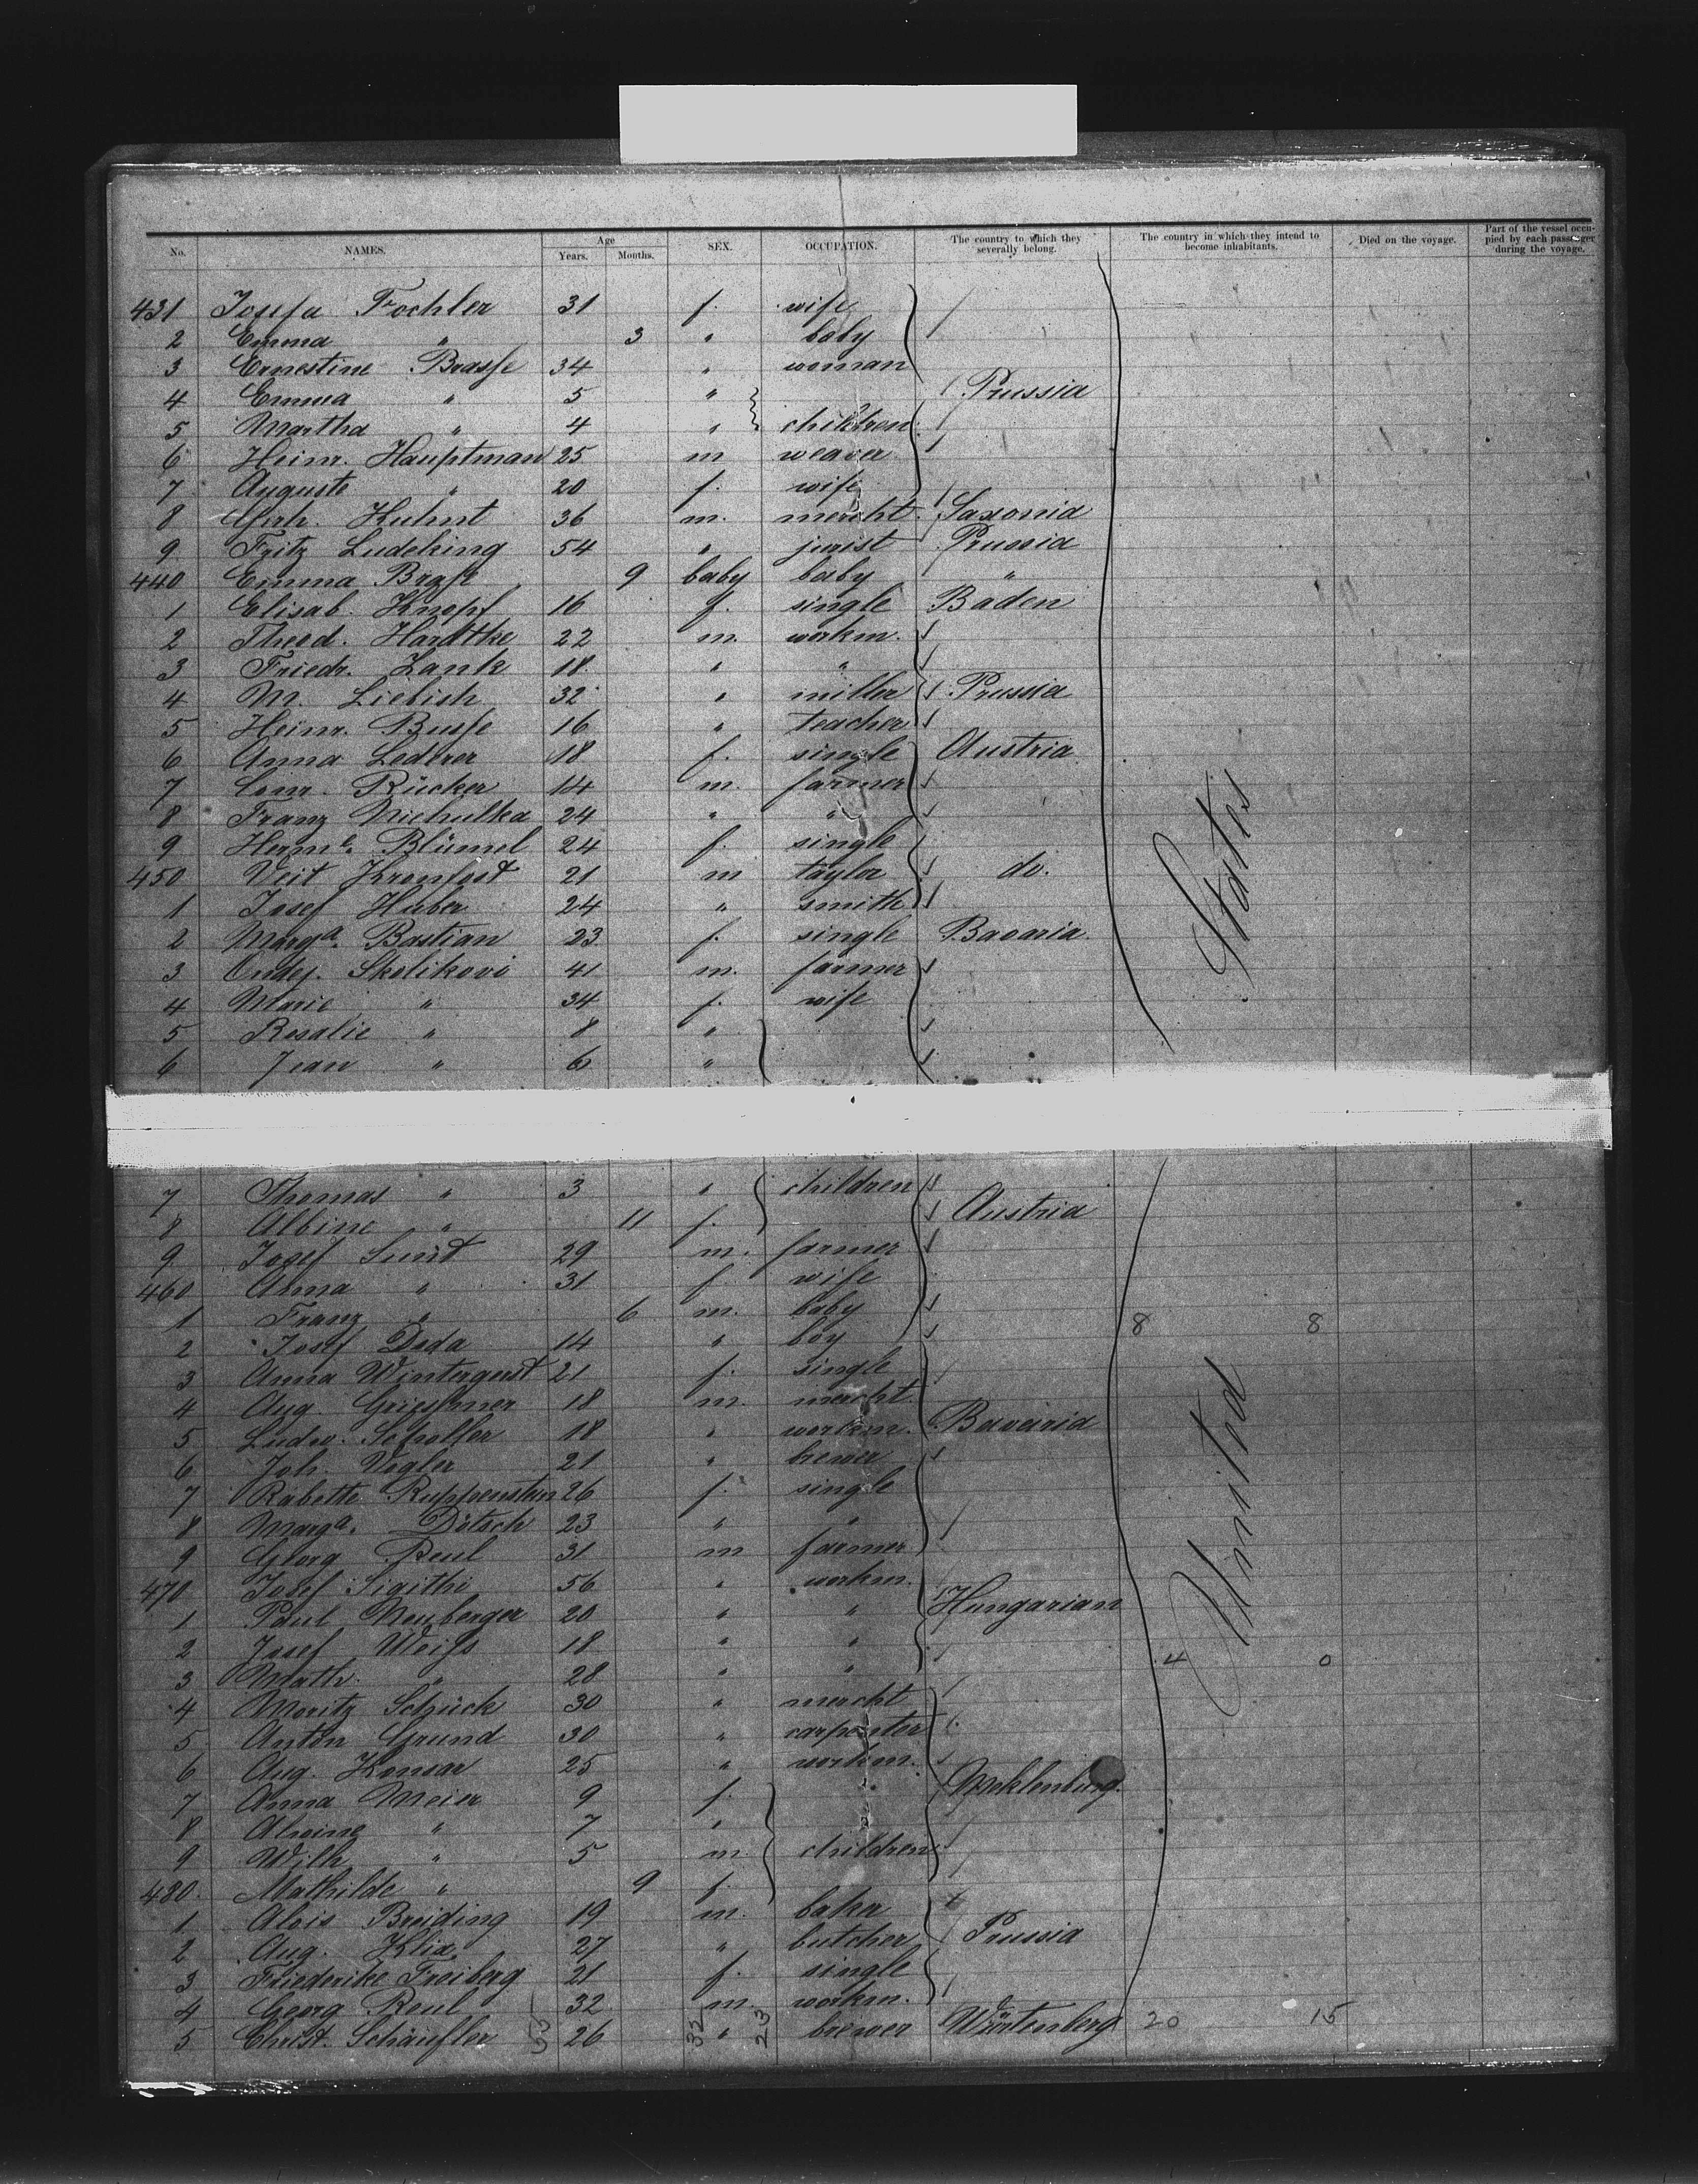 No. NAMES. Age Years. Months. SEX. OCCUPATION. The country to which they severally belong. The country in which they intend to become inhabitants. Died on the voyage. Part of the vessel occupied by each passenger during the voyage.
431 Josefa Fochler 31 f. wife
2 Emma " 3 " baby
3 Ernestine Brasse 34 " woman
4 Emma " 5 " Prussia
5 Martha " 4 " children
6 Heinr. Hauptman 25 m weaver
7 Auguste " 20 f. wife
8 Kuhnt 36 m. mercht. Saxonia
9 Fritz Ludeking 54 " jurist Prussia
440 Emma Brasse 9 baby baby "
1 Elisab. Knopf 16 f. single Baden
2 Theod. Hardtke 22 m. workm.
3 Friedr. Zank 18 " "
4 M. Liebich 32 " miller Prussia
5 Heinr. Busse 16 " teacher
6 Anna Lederer 18 f. single Austria
7 Rücker 14 m. farmer
8 Franz Nichulka 24 " "
9 Herme. Blümel 24 f. single
450 Veit Kronfest 21 m taylor do.
1 Josef Huber 24 " smith
2 Marga. Bastian 23 f. single Bavaria
3 Ondej. Skolikovi 41 m. farmer
4 Marie " 34 f. wife
5 Rosalie " 8 "
6 Jean " 6 "
States
7 Thomas " 3 " children
8 Albine " 11 f. Austria
9 Josef 29 m. farmer
460 Anna " 31 f wife
1 Franz " 6 m. baby
2 Josef Deda 14 " boy 8 8
3 Anna Wintergerst 21 f. single
4 Aug. Griessmer 18 m. mercht.
5 Ludw. 18 " workm. Bavaria
6 Joh. Vogler 21 " brewer
7 Babette Ruppenstein 26 f. single
8 Marga. Dötsch 23 " "
9 Georg Reul 31 m farmer
470 Josef Sigithi 56 " workm.
1 Paul Neuberger 20 " " Hungarian
2 Josef Weiss 18 " "
3 Math. " 28 " " 4 0
4 Moritz Schück 30 " mercht
5 Anton Grund 30 " carpenter
6 Aug. Konsar 25 " workm.
7 Anna Meier 9 f. " Meklenburg.
8 Alwine " 7 "
9 Wilh. " 5 m. children
480. Mathilde " 9 f.
1 Alois Breiding 19 m. baker
2 Aug. Klix 27 " butcher Prussia
3 Friederike Freiberg 21 f. single
4 Georg Reul 32 m. workm.
5 Christ. Schäufler 55 26 32 " 23 brewer Würtenberg 20 15
United